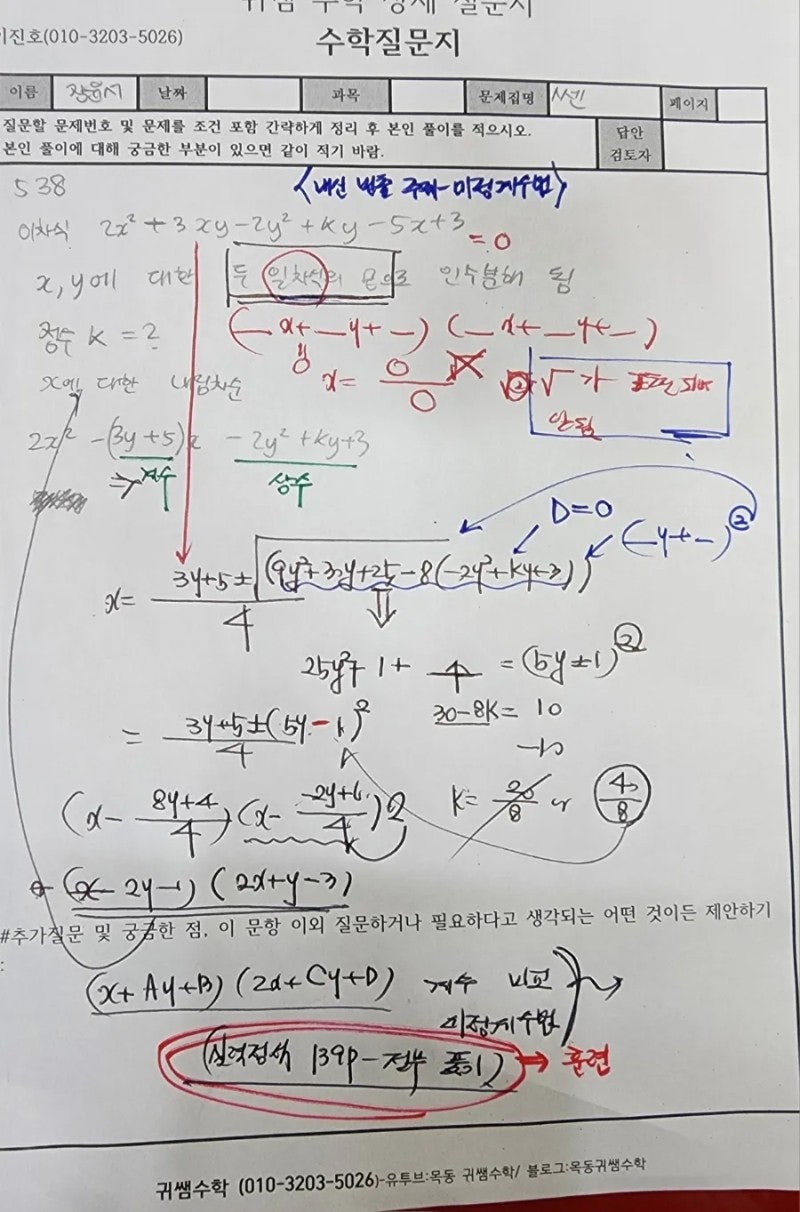 수학질문지
이진호(010-3203-5026)
이름 날짜 과목 문제집명 쎈 페이지
질문할 문제번호 및 문제를 조건 포함 간략하게 정리 후 본인 풀이를 적으시오.
본인 풀이에 대해 궁금한 부분이 있으면 같이 적기 바람.
답안
검토자
538
〈내신 빈출 주제-미정계수법〉
이차식 2x² + 3xy - 2y² + ky - 5x + 3 = 0
x, y에 대한 두 일차식의 곱으로 인수분해 됨
정수 k = ?
(_x+_y+_) (_x+_y+_)
x에 대한 내림차순
x=
√가
안됨
2x² -(3y+5)x -2y²+ky+3
⇒계수
상수
D=0
(_y+_)²
x= 3y+5±√(9y²+30y+25-8(-2y²+ky+3))
4
25y²+1+ = (5y±1)²
= 3y+5±(5y-1)²
4
30-8k= 10
-10
(x- 8y+4
4) (x- -2y+6
4)2
k= 20
8 or 40
8
(x-2y-1) (2x+y-3)
#추가질문 및 궁금한 점, 이 문항 이외 질문하거나 필요하다고 생각되는 어떤 것이든 제안하기
:
(x+Ay+B) (2x+Cy+D) 계수 비교
미정계수법
(실력정석 139p-전부 풀기) → 훈련
귀쌤수학 (010-3203-5026)-유투브:목동 귀쌤수학/ 블로그:목동귀쌤수학